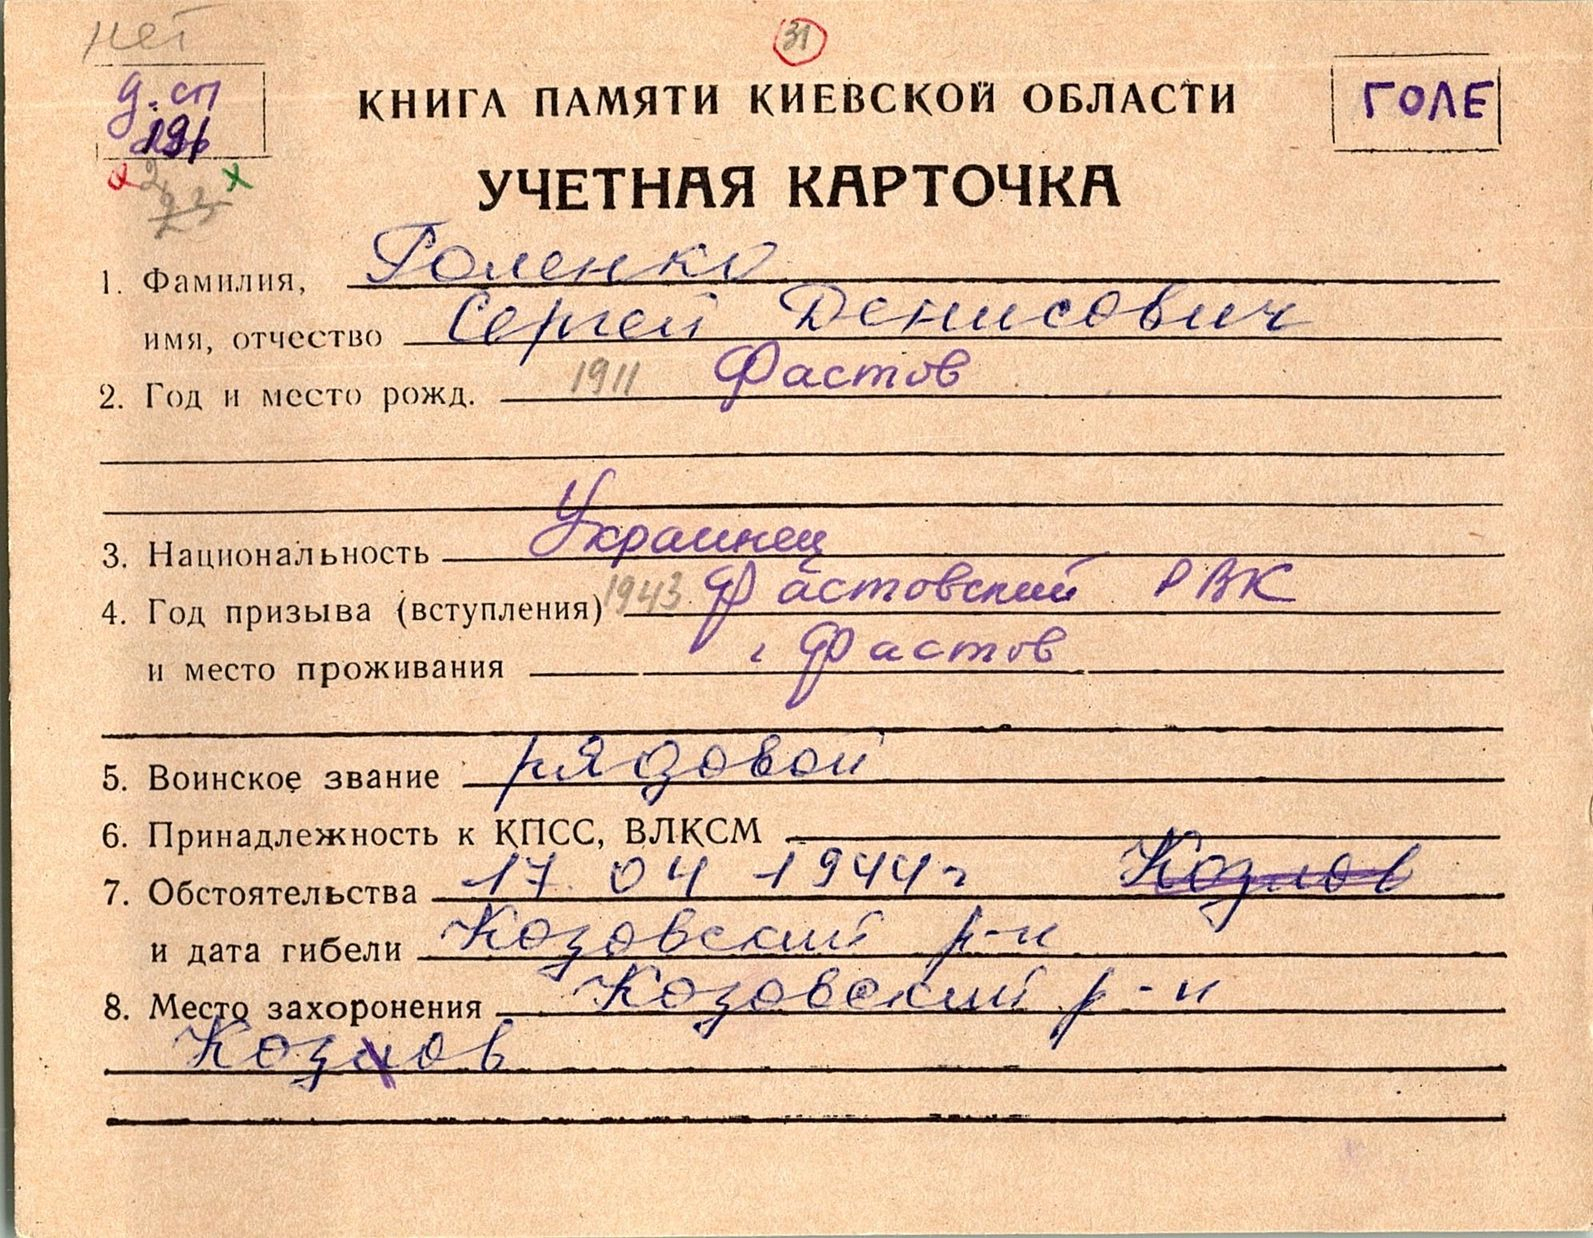 нет
31
д. сп
191
КНИГА ПАМЯТИ КИЕВСКОЙ ОБЛАСТИ
ГОЛЕ
23
УЧЕТНАЯ КАРТОЧКА
1. Фамилия, Голенко
имя, отчество Сергей Денисович
2. Год и место рожд. 1911 Фастов
3. Национальность Украинец
4. Год призыва (вступления) 1943 Фастовский РВК
и место проживания г Фастов
5. Воинское звание рядовой
6. Принадлежность к КПСС, ВЛКСМ
7. Обстоятельства 17. 04 1944 г Козлов
и дата гибели Козовский р-н
8. Место захоронения Козовский р-н
Козлов